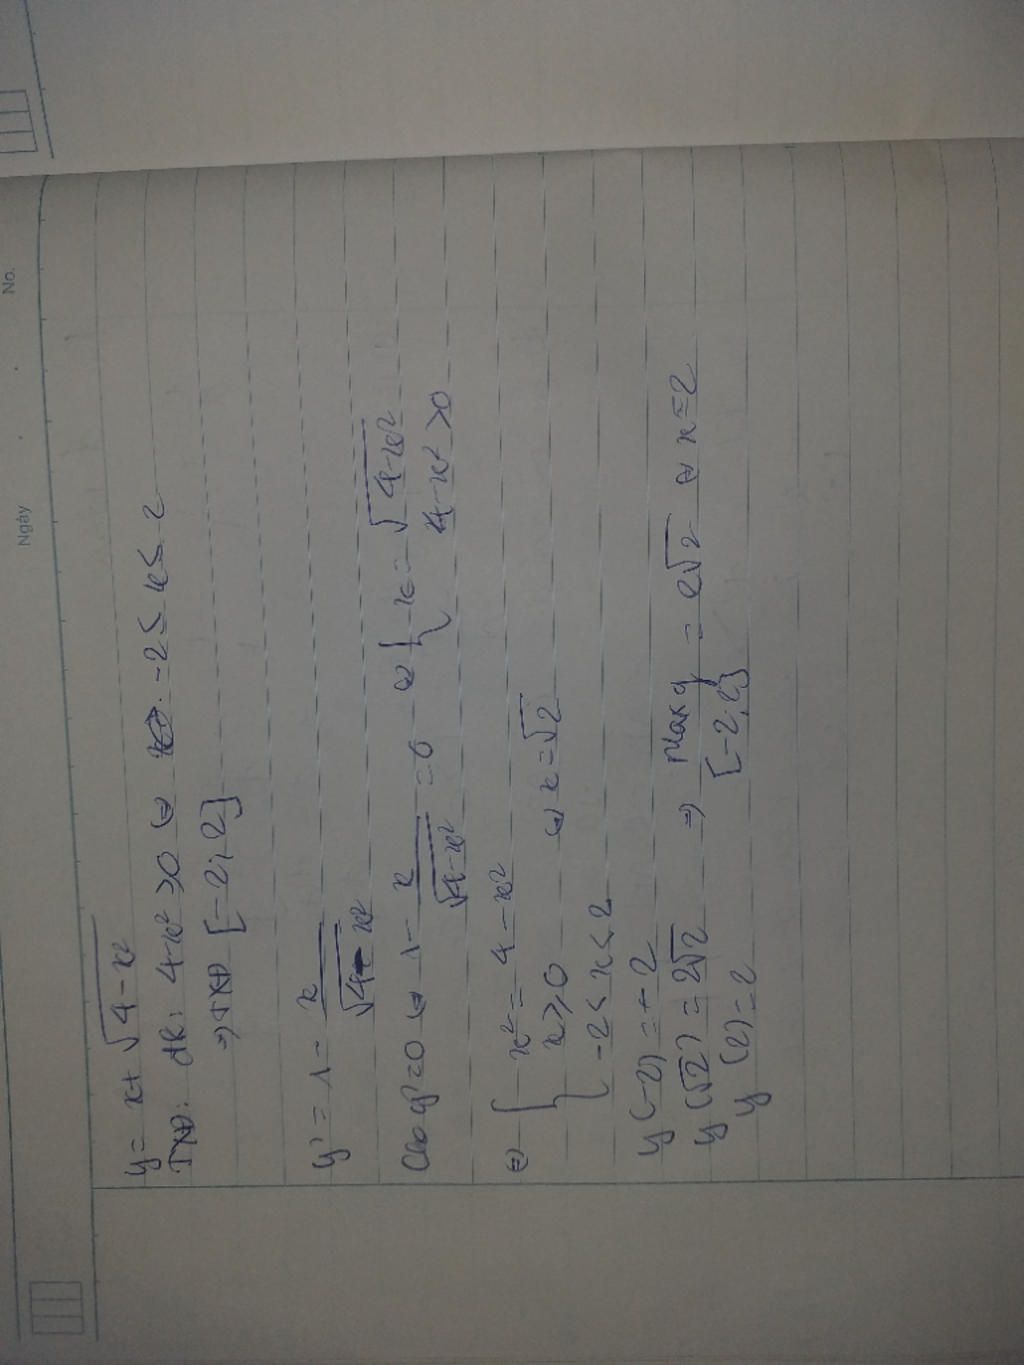 Ngày
No.
y = x + √(4-x²)
TXĐ: đk: 4-x² ≥0 ⇔ -2 ≤ x ≤ 2
⇒ TXĐ [-2; 2]
y' = 1 - x/√(4-x²)
Cho y'=0 ⇔ 1 - x/√(4-x²) = 0 ⇔ { x = √(4-x²)
4-x² >0
⇔ { x² = 4-x²
x ≥ 0 ⇔ x = √2
-2 < x < 2
y(-2) = -2
y(√2) = 2√2 ⇒ Max y = 2√2 ⇔ x = 2
y(2) = 2 [-2; 2]